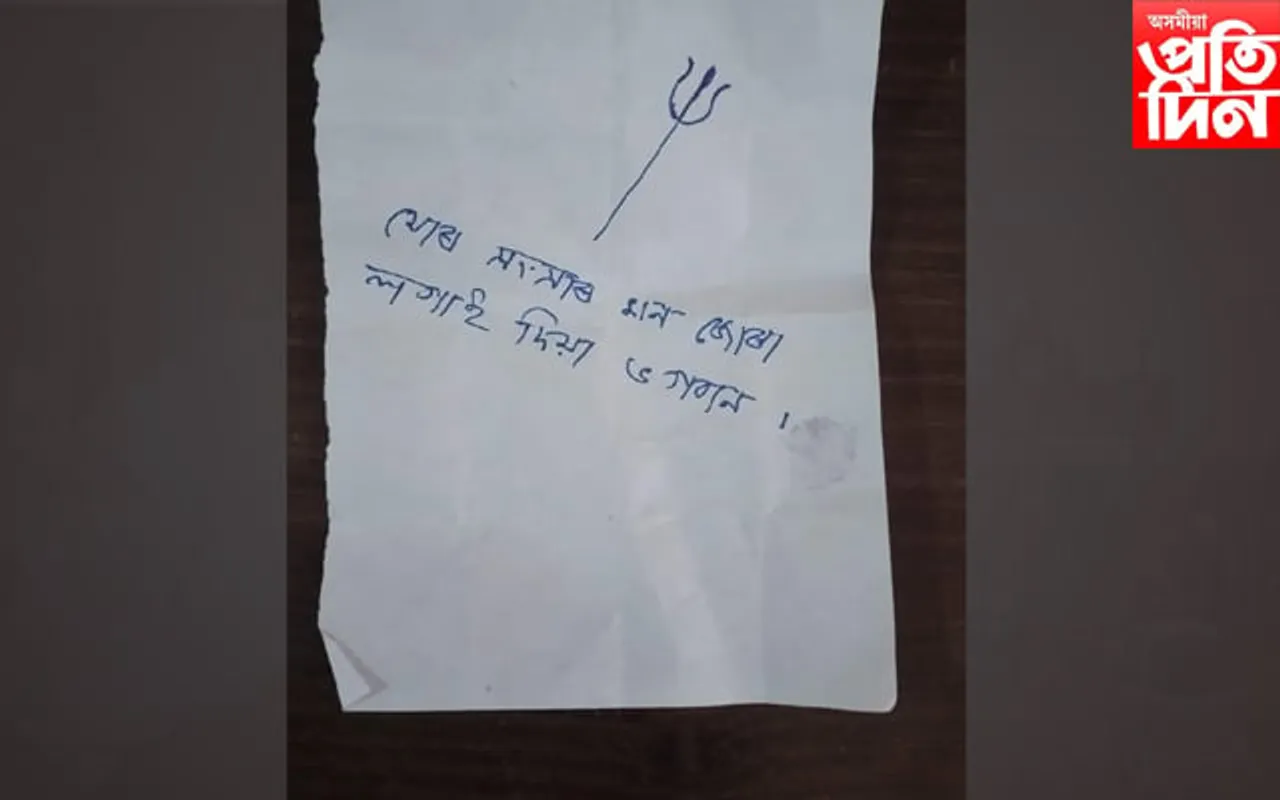 অসমীয়া
প্ৰতি
দিন
মোৰ সংসাৰ মন জোৰা
লগাই দিয়া ভগবান ।